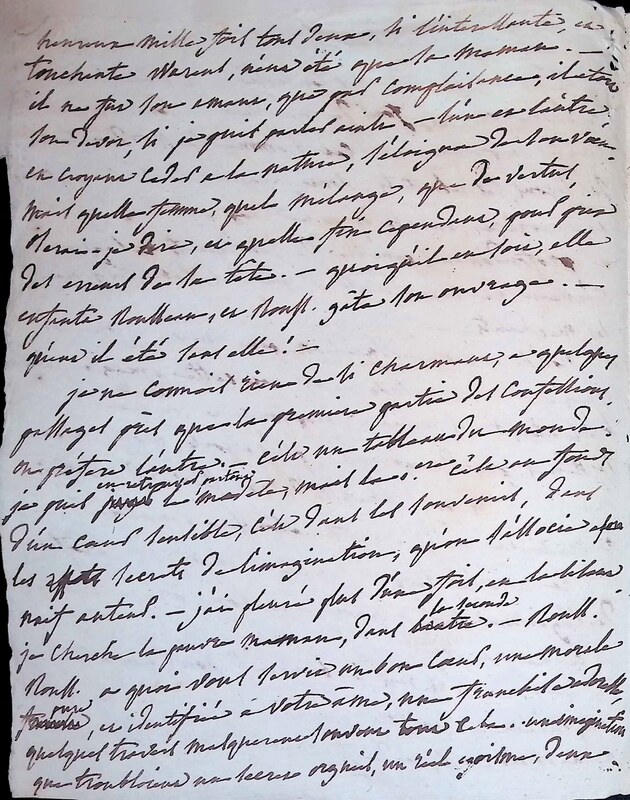 heureux mille fois tous deux, si l'interessante, et
touchante Warens, n'eus été que la maman. —
il ne fus son amans, que par complaisance, il etois
son devoir, si je puis parler ainsi — l'un et l'autre
en croyans ceder a la nature, s'eloigna de son vœu.
mais quelle femme, quel mélange, que de vertus,
oserai-je dire, et quelle fin cependans, pour prix
des erreurs de sa tête. — quoiqu'il en sois, elle
enfanta Rousseau, et Rouss. gâta son ouvrage. —
qu'eus il été sans elle! —
je ne connois rien de si charmans, a quelques
passages près que la premiere partie des Confessions,
on préfere l'autre. — c'est un tableau du monde.
je puis en retrouver partout le modele, mais la 1ere c'est au fond
d'un cœur sensible, c'est dans les souvenirs, dans
les secrets de l'imagination, qu'on s'associe a son
auteur. — j'ai pleuré plus d'une fois, en la lisans
je cherche la pauvre maman, dans la seconde. — Rouss.
Rouss. a quoi vous servis un bon cœur, une morale
pure, et identifiée a votre âme, une franchise
quelques travers masquerent souvent tous cela. une imagination
que troublerent un secret orgueil, un réel egoïsme, d'une